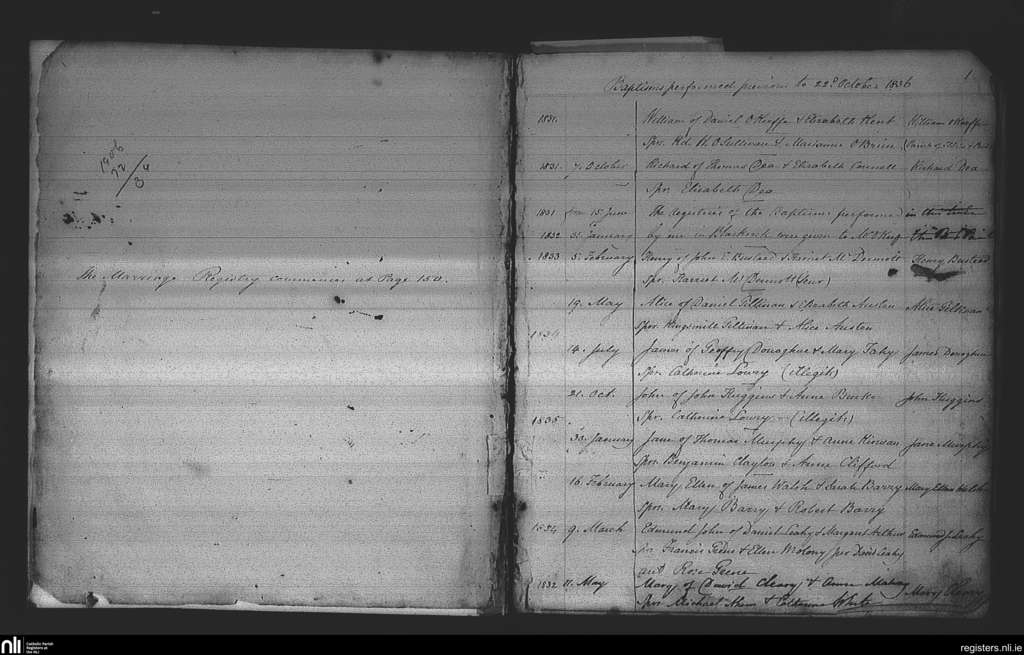 1906
22
/34
The Marriage Registry commences at Page 150.
1
Baptisms performed previous to 22d October 1836
1831. William of Daniel O'Keeffe & Elizabeth Kent William O'Keeffe
Spr. Rd. H. O'Sullivan & Marianne O'Brien
1831. 7. October Richard of Thomas Dea & Elizabeth Connell Richard Dea
Spr. Elizabeth Dea
1831 from 15 June The registries of the Baptisms performed in the
1832 31. January by me in Blackrock were given to Mr O'Keeffe
1833 5. February Henry of John E. Bustead & Harriet McDermott Henry Bustead
Spr. Harriet McDermott (Senr)
19. May Alice of Daniel Tillinan & Elizabeth Austen Alice Tillinan
Spr. Kingsmill Tillinan & Alice Austen
1834
14. July James of Geoffry Donoghue & Mary Fahy James Donoghue
Spr. Catherine Lowry (illegit)
21. Oct. John of John Huggins & Anne Burke John Huggins
1835. Spr. Catherine Lowry (illegit)
30. January Jane of Thomas Murphy & Anne Kirwan Jane Murphy
Spr. Benjamin Clayton & Anne Clifford
16. February Mary Ellen of James Walsh & Sarah Barry Mary Ellen Walsh
Spr. Mary Barry & Robert Barry
1834 9. March Edmund John of Daniel Leahy & Margaret Arthur Edmund J. Leahy
Spr. Francis & Ellen Molony Spr David Leahy
and Rose
1832 11. May Mary of David Cleary & Anne Mahony Mary Cleary
Spr. Michael & Catherine White
nli
Catholic Parish
Registers at
the NLI
registers.nli.ie